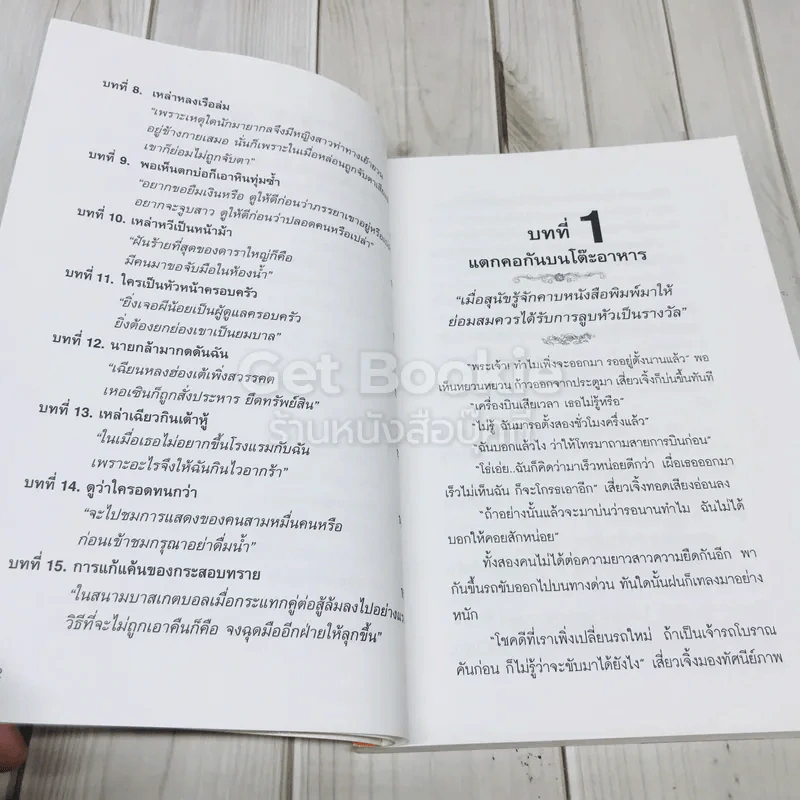 บทที่ 8. เหล่าหลงเรือล่ม
"เพราะเหตุใดนักมายากลจึงมีหญิงสาวท่าทางเย้ายวน
อยู่ข้างกายเสมอ นั่นก็เพราะในเมื่อหล่อนถูกจับตา
เขาก็ย่อมไม่ถูกจับตา"
บทที่ 9. พอเห็นตกบ่อก็เอาหินทุ่มซ้ำ
"อยากขอยืมเงินหรือ ดูให้ดีก่อนว่าภรรยาเขาอยู่
อยากจะจูบสาว ดูให้ดีก่อนว่าปลอดคนหรือเปล่า"
บทที่ 10. เหล่าหวีเป็นหน้าม้า
"ฝันร้ายที่สุดของดาราใหญ่ก็คือ
มีคนมาขอจับมือในห้องน้ำ"
บทที่ 11. ใครเป็นหัวหน้าครอบครัว
"ยิ่งเจอผีน้อยเป็นผู้ดูแลครอบครัว
ยิ่งต้องยกย่องเขาเป็นยมบาล"
บทที่ 12. นายกล้ามากดดันฉัน
"เฉียนหลงฮ่องเต้เพิ่งสวรรคต
เหอเซินก็ถูกสั่งประหาร ยึดทรัพย์สิน"
บทที่ 13. เหล่าเฉียวกินเต้าหู้
"ในเมื่อเธอไม่อยากขึ้นโรงแรมกับฉัน
เพราะอะไรจึงให้ฉันกินไวอากร้า"
บทที่ 14. ดูว่าใครอดทนกว่า
"จะไปชมการแสดงของคนสามหมื่นคนหรือ
ก่อนเข้าชมกรุณาอย่าดื่มน้ำ"
บทที่ 15. การแก้แค้นของกระสอบทราย
"ในสนามบาสเกตบอลเมื่อกระแทกคู่ต่อสู้ล้มลงไปอย่าง
วิธีที่จะไม่ถูกเอาคืนก็คือ จงฉุดมืออีกฝ่ายให้ลุกขึ้น"
บทที่ 1
แดกคอกันบนโต๊ะอาหาร
"เมื่อสุนัขรู้จักคาบหนังสือพิมพ์มาให้
ย่อมสมควรได้รับการลูบหัวเป็นรางวัล"
"พระเจ้า! ทำไมเพิ่งจะออกมา รออยู่ตั้งนานแล้ว" พอ
เห็นหยวนหยวน ก้าวออกจากประตูมา เสี่ยวเจิ้งก็บ่นขึ้นทันที
"เครื่องบินเสียเวลา เธอไม่รู้หรือ"
"ไม่รู้ ฉันมารอตั้งสองชั่วโมงครึ่งแล้ว"
"ฉันบอกแล้วไง ว่าให้โทรมาถามสายการบินก่อน"
"โธ่เอ่ย..ฉันก็คิดว่ามาเร็วหน่อยดีกว่า เผื่อเธอออกมา
เร็วไม่เห็นฉัน ก็จะโกรธเอาอีก" เสี่ยวเจิ้งทอดเสียงอ่อนลง
"ถ้าอย่างนั้นแล้วจะมาบ่นว่ารอนานทำไม ฉันไม่ได้
บอกให้คอยสักหน่อย"
ทั้งสองคนไม่ได้ต่อความยาวสาวความยืดกันอีก พา
กันขึ้นรถขับออกไปบนทางด่วน ทันใดนั้นฝนก็เทลงมาอย่าง
หนัก
"โชคดีที่เราเพิ่งเปลี่ยนรถใหม่ ถ้าเป็นเจ้ารถโบราณ
คันก่อน ก็ไม่รู้ว่าจะขับมาได้ยังไง" เสี่ยวเจิ้งมองทัศนียภาพ
Get Booki
ร้านหนังสือบุ๊คกี้